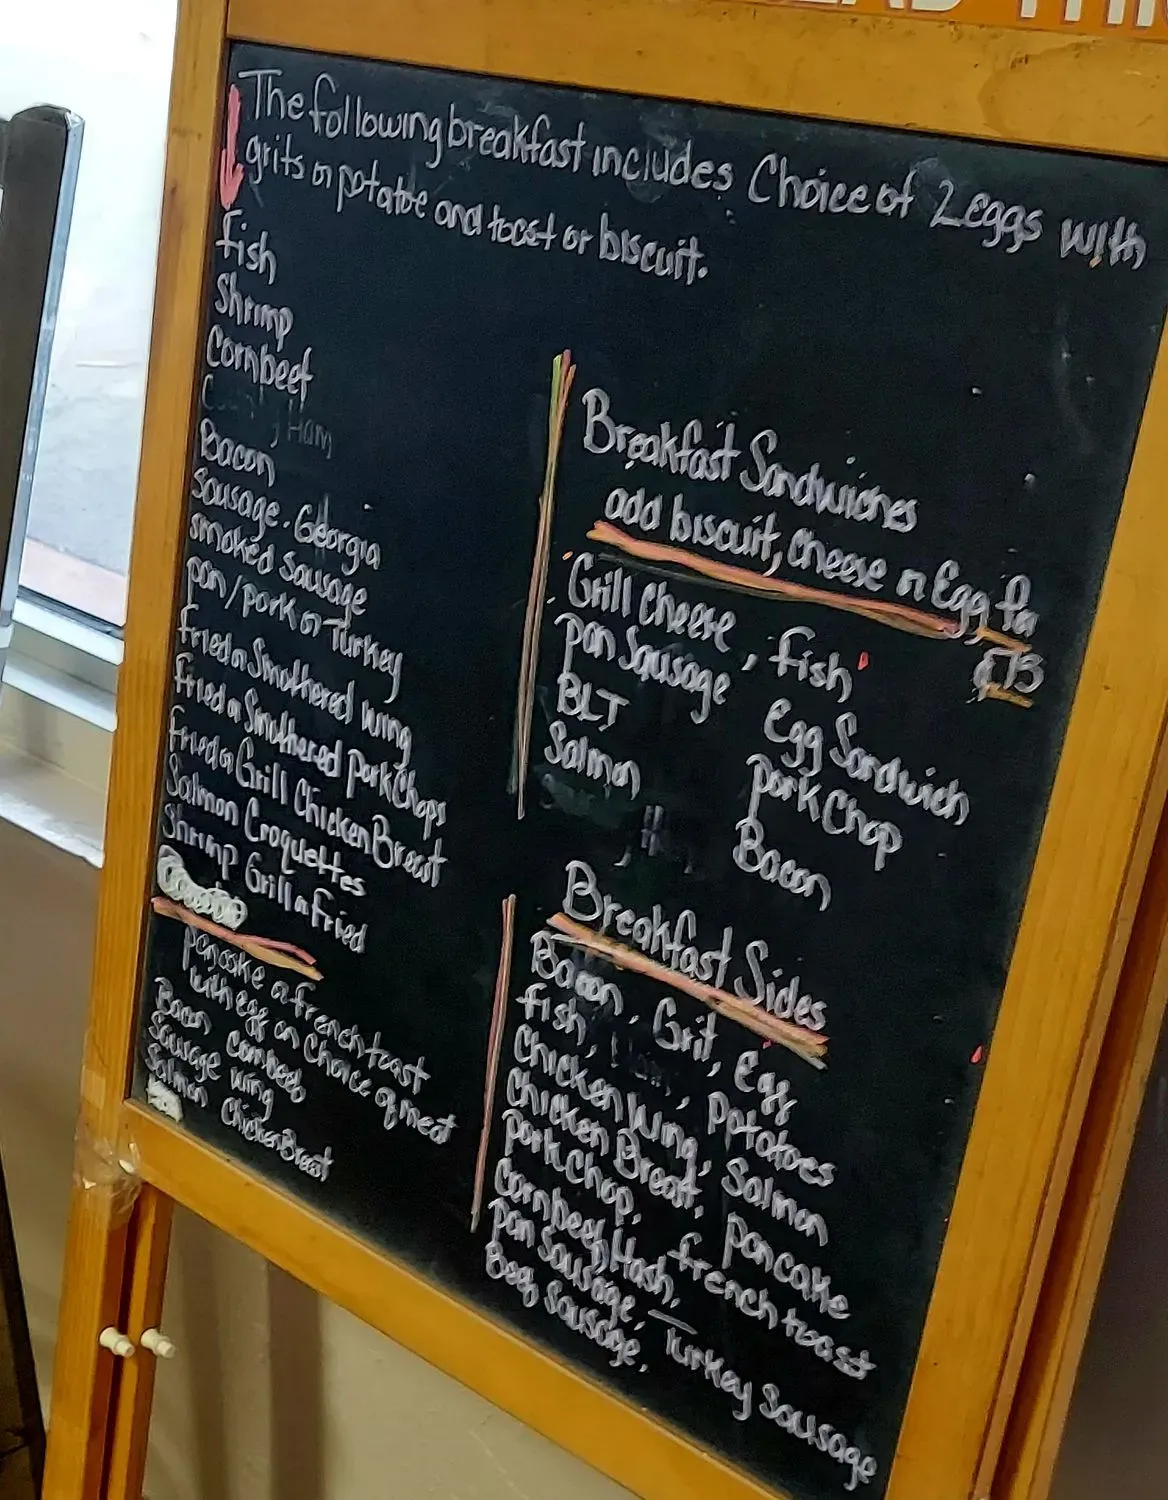 The following breakfast includes Choice of 2 eggs with
grits or potatoe and toast or biscuit.
Fish
Shrimp
Cornbeef
Ham
Bacon
Sausage. Georgia
smoked sausage
pan/pork or Turkey
Fried or Smothered wing
Fried or Smothered PorkChops
Fried or Grill Chicken Breast
Salmon Croquettes
Shrimp Grill or Fried
pancake or french toast
with egg on Choice of meat
Bacon cornbeef
Sausage wing
Salmon Chicken Breast
Breakfast Sandwiches
add biscuit, cheese or Egg for
Grill Cheese, Fish
Pan Sausage Egg Sandwich
BLT Pork Chop
Salmon Bacon
Breakfast Sides
Bacon, Grit, Egg
Fish, Potatoes
Chicken Wing, Salmon
Chicken Breast, pancake
Pork Chop, french toast
Cornbeef Hash,
Pan Sausage, Turkey Sausage
Beef Sausage,